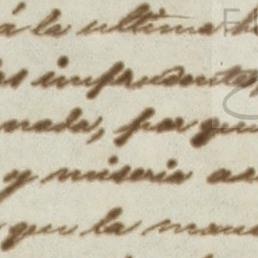 á la ultima
imprudentes,
nada, por que
y miseria
que la